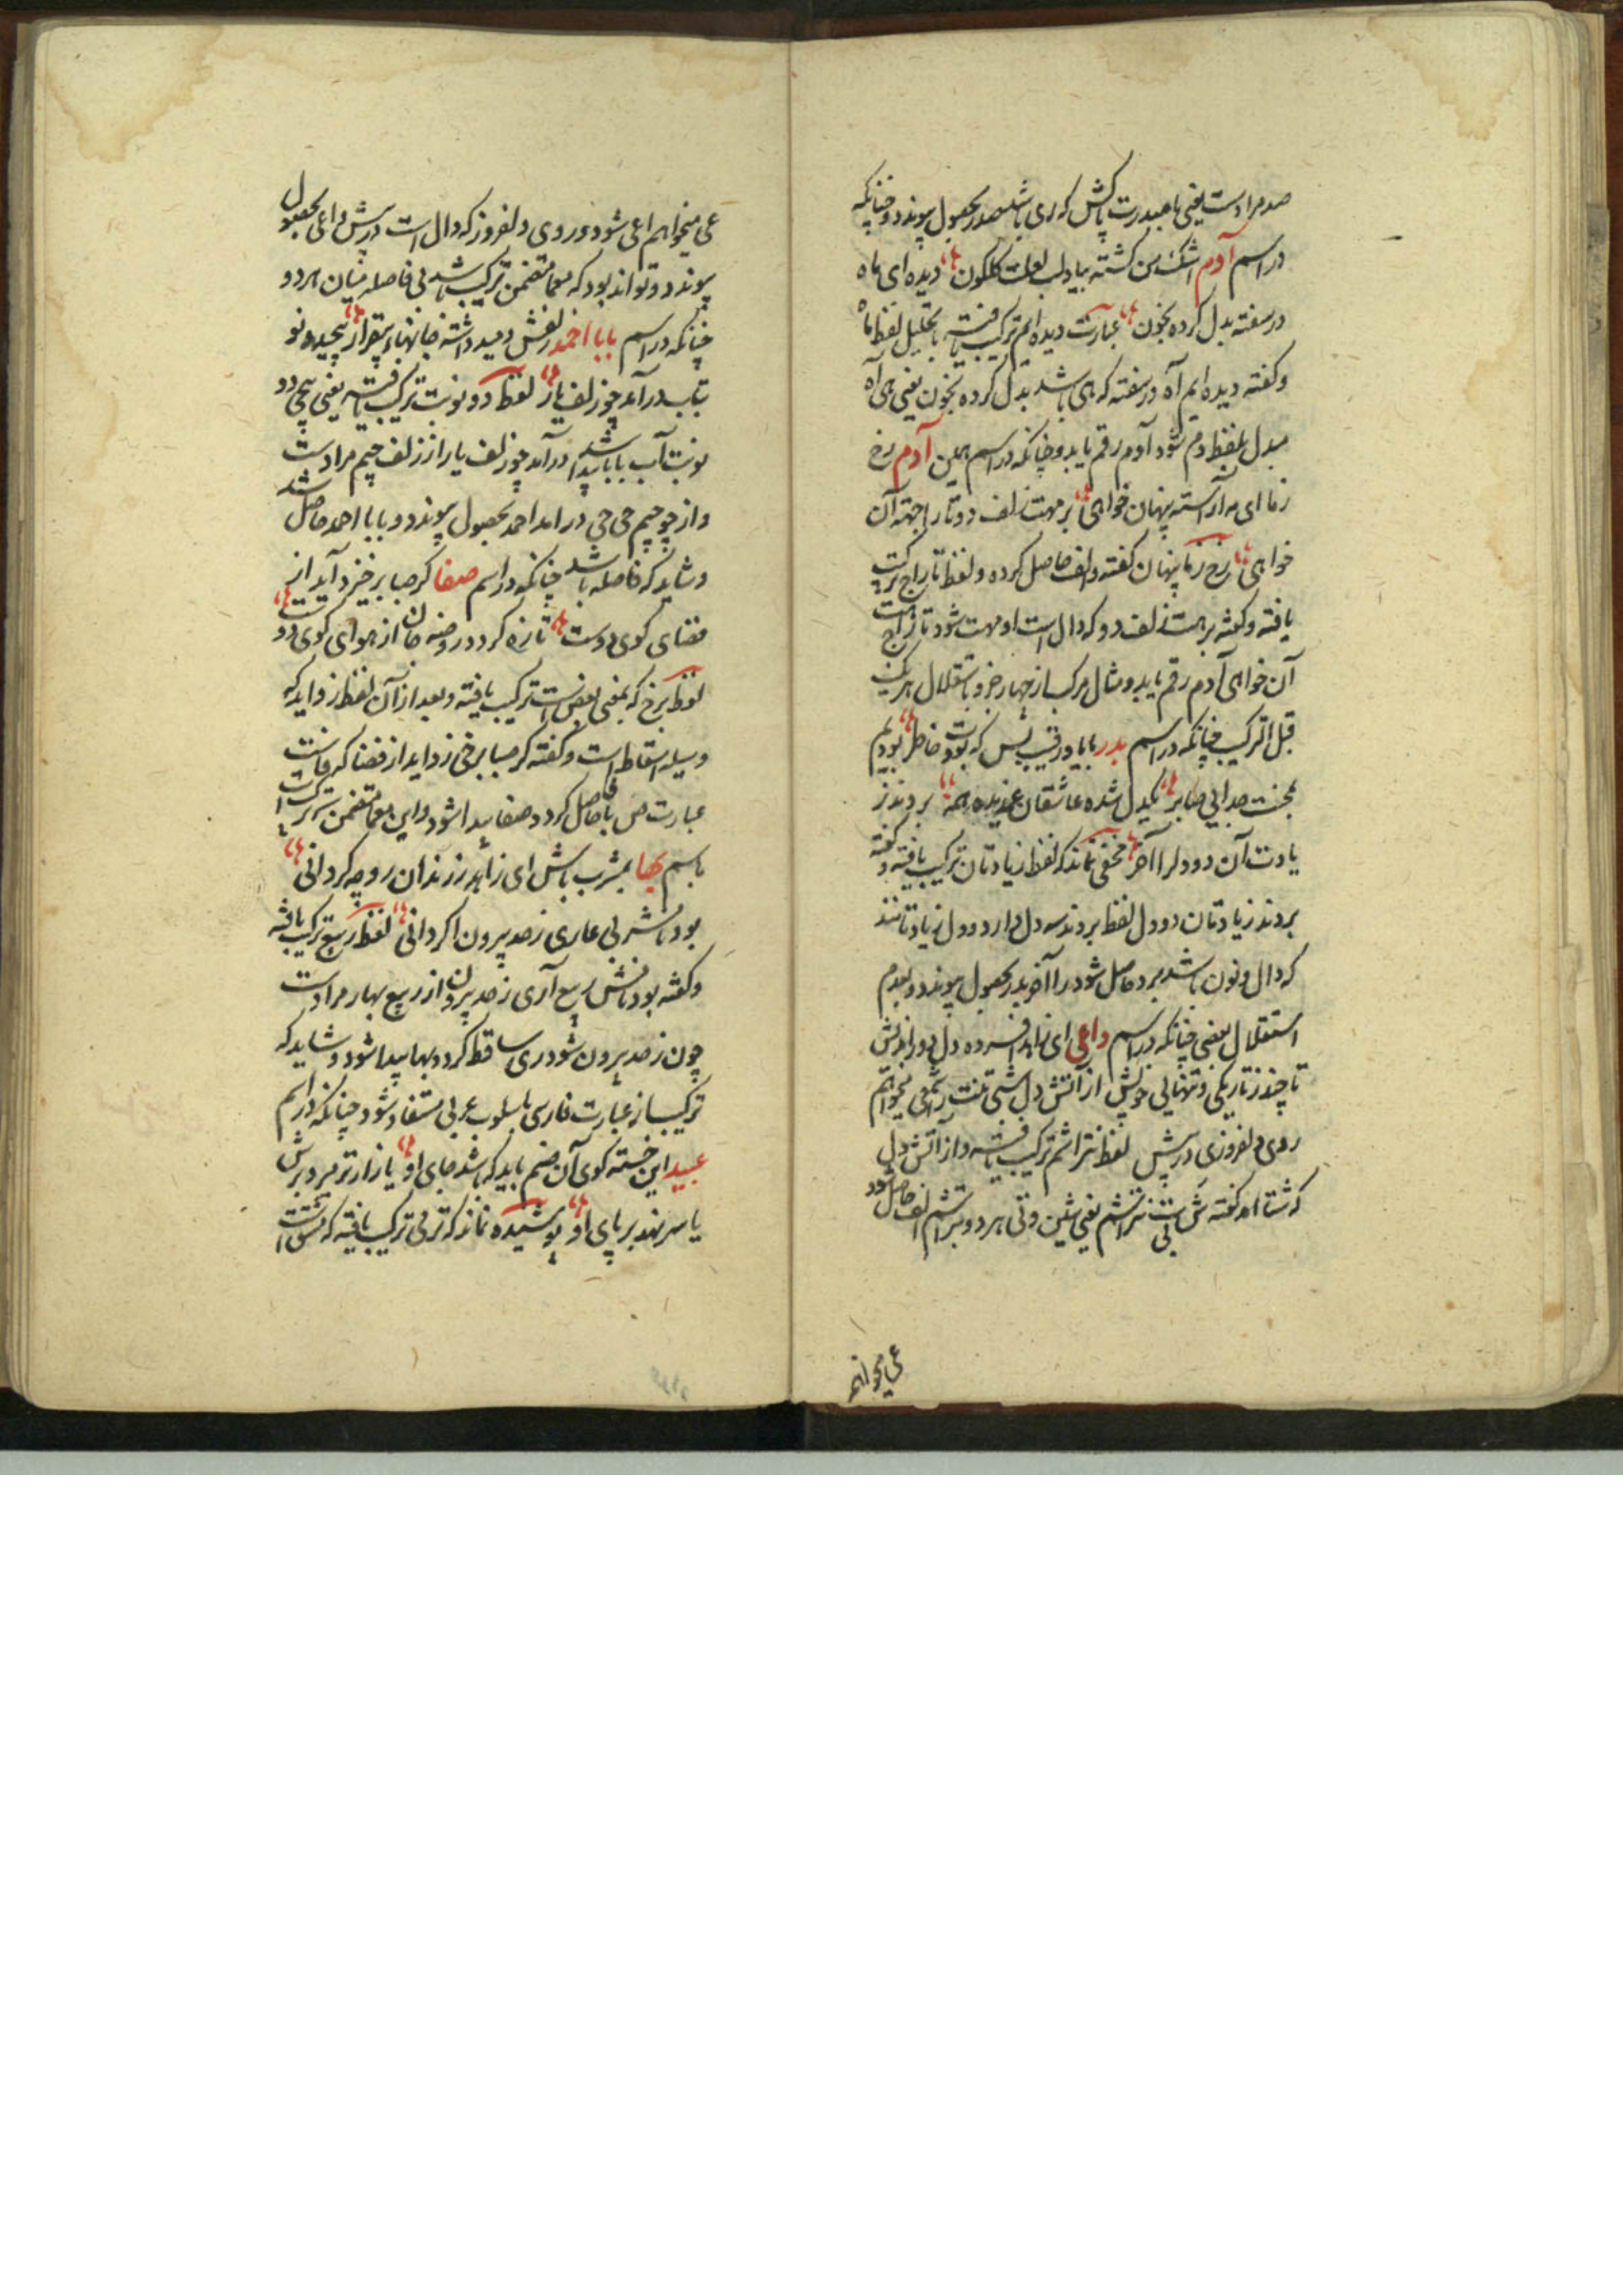 صد مراد است یعنی با صدرت پاکش که ری باشد صدر بحصول پیوندد و چنانکه
در اسم آدم اشک من کشته بیاد لب لعلت کلکون دیده ای ماه
در سفته بدل کرده بخون عبارت دیده ایم ترکیب یافته با تحلیل لفظ ماه
و کفته دیده ایم آه در سفته که های باشد بدل کرده بخون یعنی های آه
مبدل بلفظ دم شود آدم رقم یابد و چنانکه در اسم همین آدم رخ
زما ای مه آراسته پنهان خواهی بر مهت زلف دو تا را جهة آن
خواهی رخ زما پنهان کفته و الف حاصل کرده و لفظ تاراج ترکیب
یافته و کفته بر مهت زلف دو که دال است او مهت شود تاراج
آن خواهی آدم رقم یابد و مثال مرکب از چهار جزو باستقلال هر یک
قبل الترکیب چنانکه در اسم بدر بابا و رقیب پس که بودت خاطر بودیم
بمحنت جدایی صابر یکدل شده عاشقان غمدیده همه بردند ز
یادت آن دو دلرا آخر مخفی نماند که لفظ زیادتان ترکیب یافته و کفته
بردند زیادتان دو دل لفظ بردند سه دل دارد دو دل زیادتانند
که دال و نون باشد برد حاصل شود را آخر بدر بحصول پیوندد و بعدم
استقلال بعضی چنانکه در اسم داعی ای زاهد افسرده دل دور اندیش
تا چند ز تاریکی و تنهایی خویش از آتش دل شتی تنت را شمعی میخواهم
روی دلفروزی در پیش لفظ نتراشم ترکیب یافته و از آتش دل
که شتا اند کفته شتی است نتراشم یعنی شین و تی هر دو نتراشم الف حاصل شود
عی میخواهم
عی میخواهم اعی شود و روی دلفروز که دال است در پیش داعی بحصول
پیوندد و تواند بود که معما متضمن ترکیب باشد بی فاصله میان هر دو
چنانکه در اسم بابا احمد زلفش دمید داشته جانهاء بیقرار پیچیده نو
بتاب درآمد چو زلف یار لفظ دو نوبت ترکیب یافته یعنی پیچی دو
نوبت آب بابا پیدا باشد درآمد چو زلف یار از زلف جیم مراد است
و از چو جیم حی حی درآمد احمد بحصول پیوندد و بابا احمد حاصل باشد
و شاید که فاصله باشد چنانکه در اسم صفا کر صبا برخیزد آید از
فضای کوی دوست تازه کردد روضه جان از هوای کوی دوست
لفظ برخ که بمعنی بعض است ترکیب یافته و بعد از آن لفظ زداید که
وسیله اسقاط است و کفته کر صبا برخی زداید از فضا که فاست
عبارت ص با فا حاصل کردد صفا پیدا شود و این معما متضمن ترکیب است
باسم بها بمشرب باش ای زاهد ز رندان رو چه کردانی
بود مشربی عاری ز صد بیرون اکر دانی لفظ ربیع ترکیب یافته
و کفته بود مانش ربیع آری ز صد بیرون از ربیع بهار مراد است
چون ز صد بیرون شود ری ساقط کردد بها پیدا شود و شاید که
ترکیب از عبارت فارسی باسلوب عربی مستفاد شود چنانکه در اسم
عبید این خسته کوی آن صنم باید که باشد جای او یا زار تر میرد برش
یا سر نهد بر پای او پوشیده نماند که ترمی ترکیب یافته که مشتق است